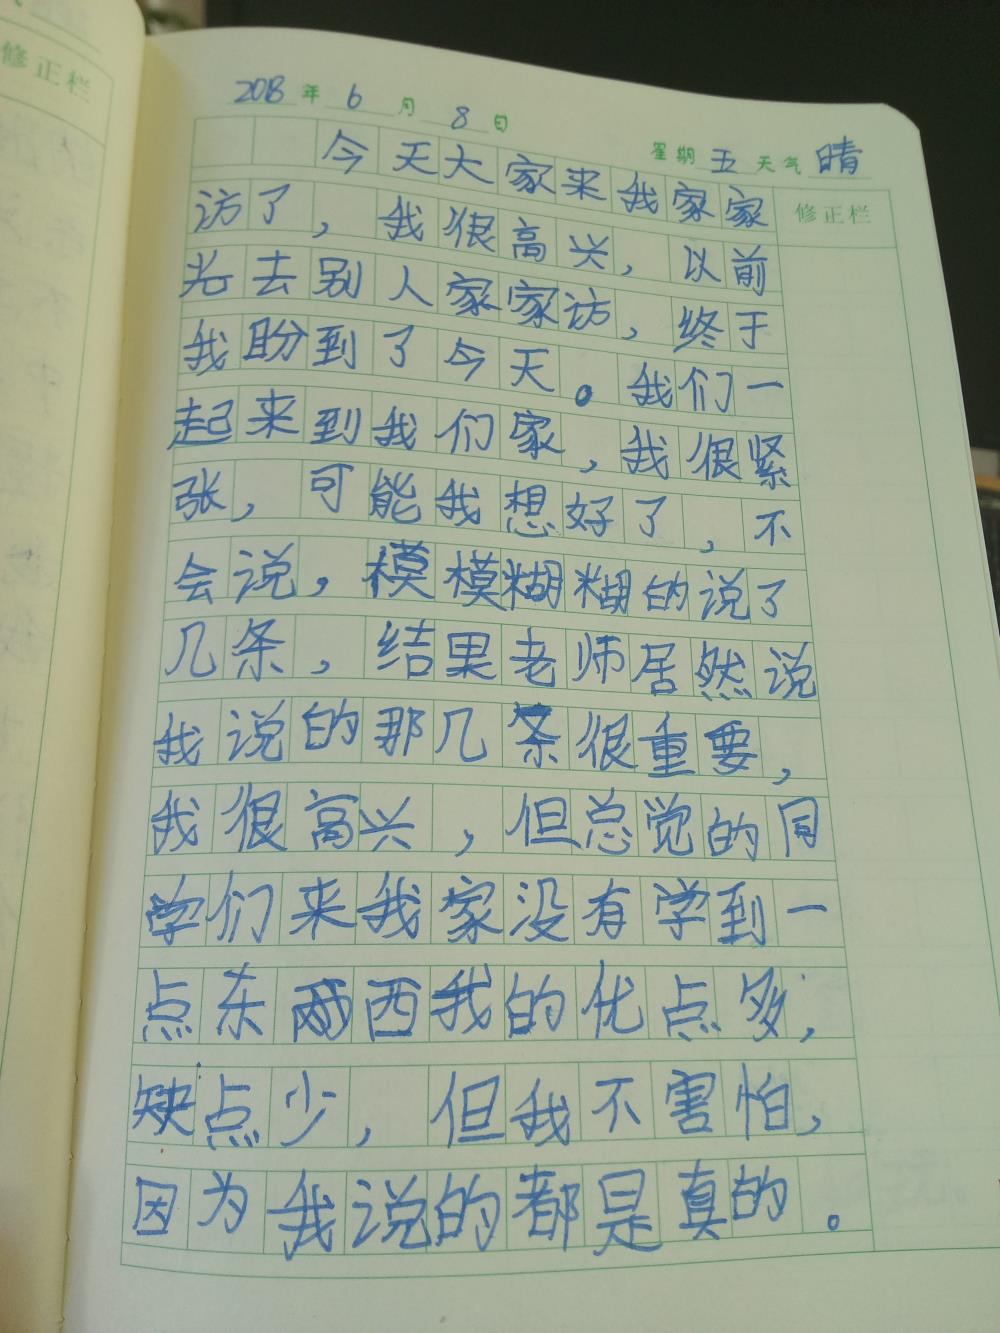 修正栏
2018年6月8日
星期五 天气晴
修正栏
今天大家来我家家
访了，我很高兴，以前
光去别人家家访，终于
我盼到了今天。我们一
起来到我们家，我很紧
张，可能我想好了，不
会说，模模糊糊的说了
几条，结果老师居然说
我说的那几条很重要，
我很高兴，但总觉的同
学们来我家没有学到一
点东西我的优点多，
缺点少，但我不害怕，
因为我说的都是真的。